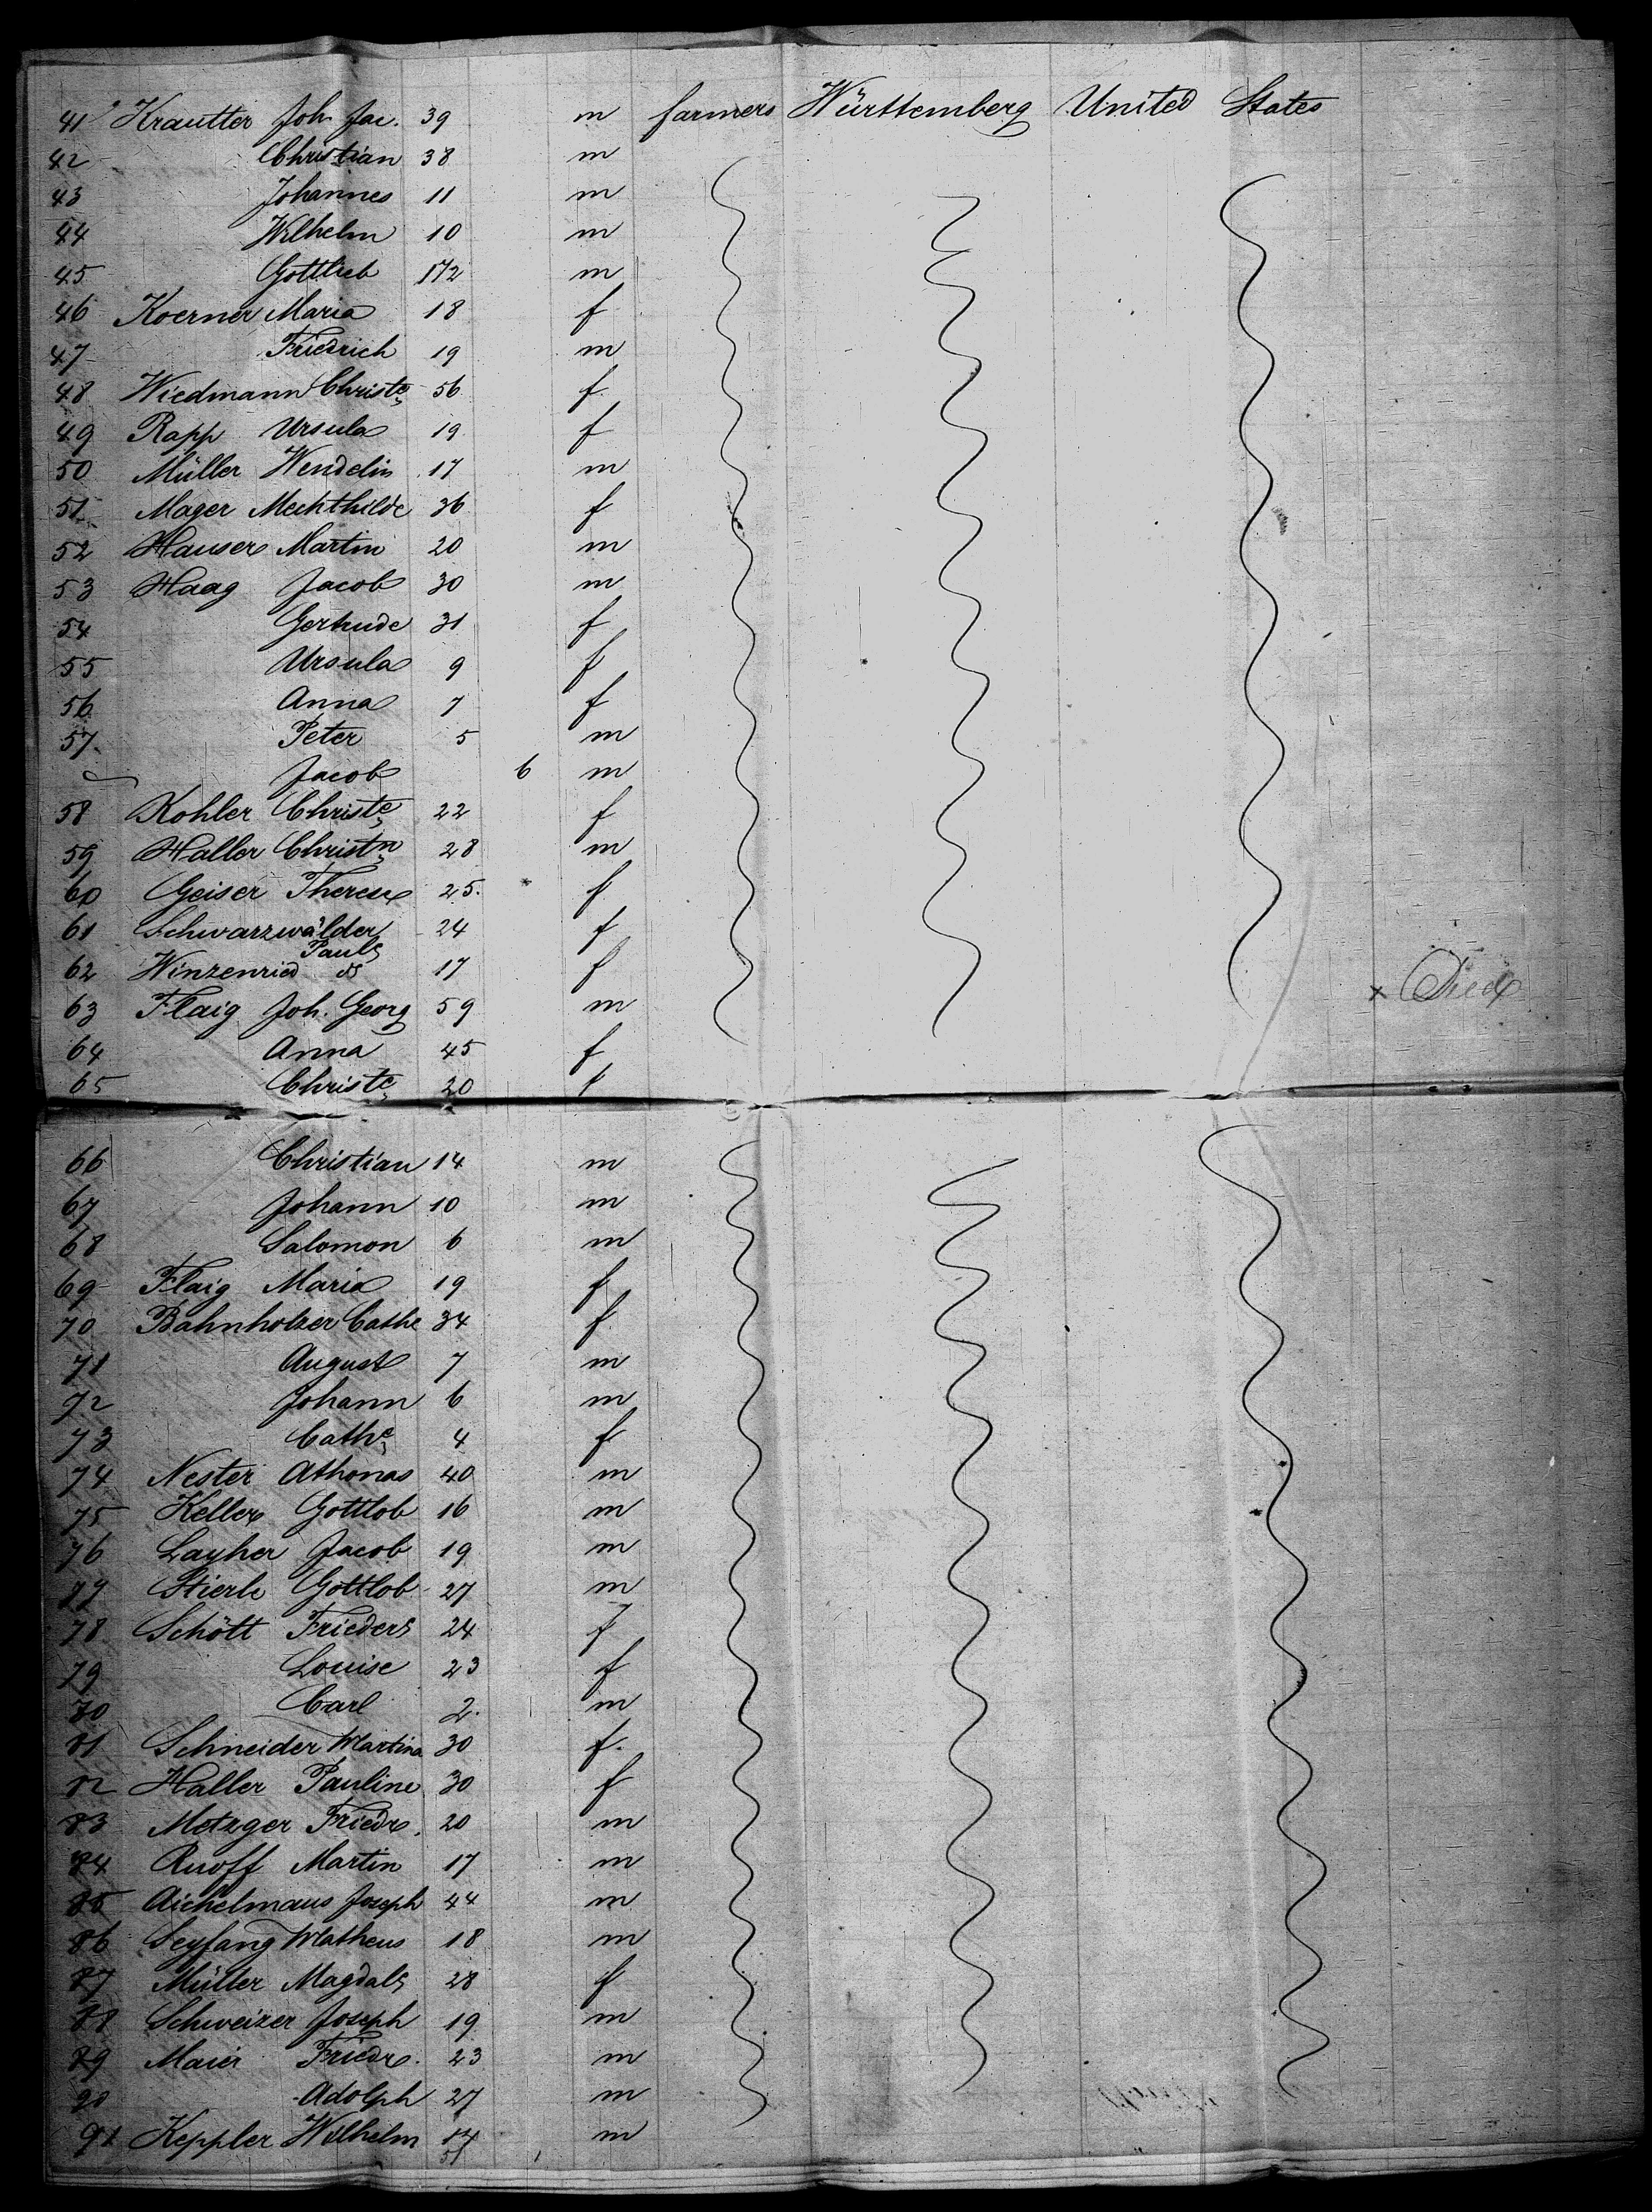 41 Krautter Joh. Jac. 39 m farmers Württemberg United States
42 Christian 38 m
43 Johannes 11 m
44 Wilhelm 10 m
45 Gottlieb 1 1/2 m
46 Koerner Maria 18 f
47 Friedrich 19 m
48 Wiedmann Christe 56 f
49 Rapp Ursula 19 f
50 Müller Wendelin 17 m
51 Mager Mechthilde 36 f
52 Hauser Martin 20 m
53 Haag Jacob 30 m
54 Gertrude 31 f
55 Ursula 9 f
56 Anna 7 f
57 Peter 5 m
Jacob 6 m
58 Kohler Christe 22 f
59 Haller Christn 28 m
60 Geiser Therese 25. f
61 Schwarzwälder 24 f
Paule
62 Winzenried do 17 f
63 Flaig Joh. Georg 59 m x Died
64 Anna 45 f
65 Christe 20 f
66 Christian 14 m
67 Johann 10 m
68 Salomon 6 m
69 Flaig Maria 19 f
70 Bahnholzer Cathe 34 f
71 August 7 m
72 Johann 6 m
73 Cathe 4 f
74 Nester Athonas 40 m
75 Keller Gottlob 16 m
76 Layher Jacob 19 m
77 Stierle Gottlob 27 m
78 Schött Frieder 24 f
79 Louise 23 f
80 Carl 2. m
81 Schneider Martina 30 f.
82 Haller Pauline 30 f
83 Metzger Friedr. 20 m
84 Ruoff Martin 17 m
85 Aichelmaus Joseph 44 m
86 Seyfang Matheus 18 m
87 Müller Magdal 28 f
88 Schweizer Joseph 19 m
89 Maier Friedr. 23 m
90 Adolph 27 m
91 Keppler Wilhelm 17 m
51